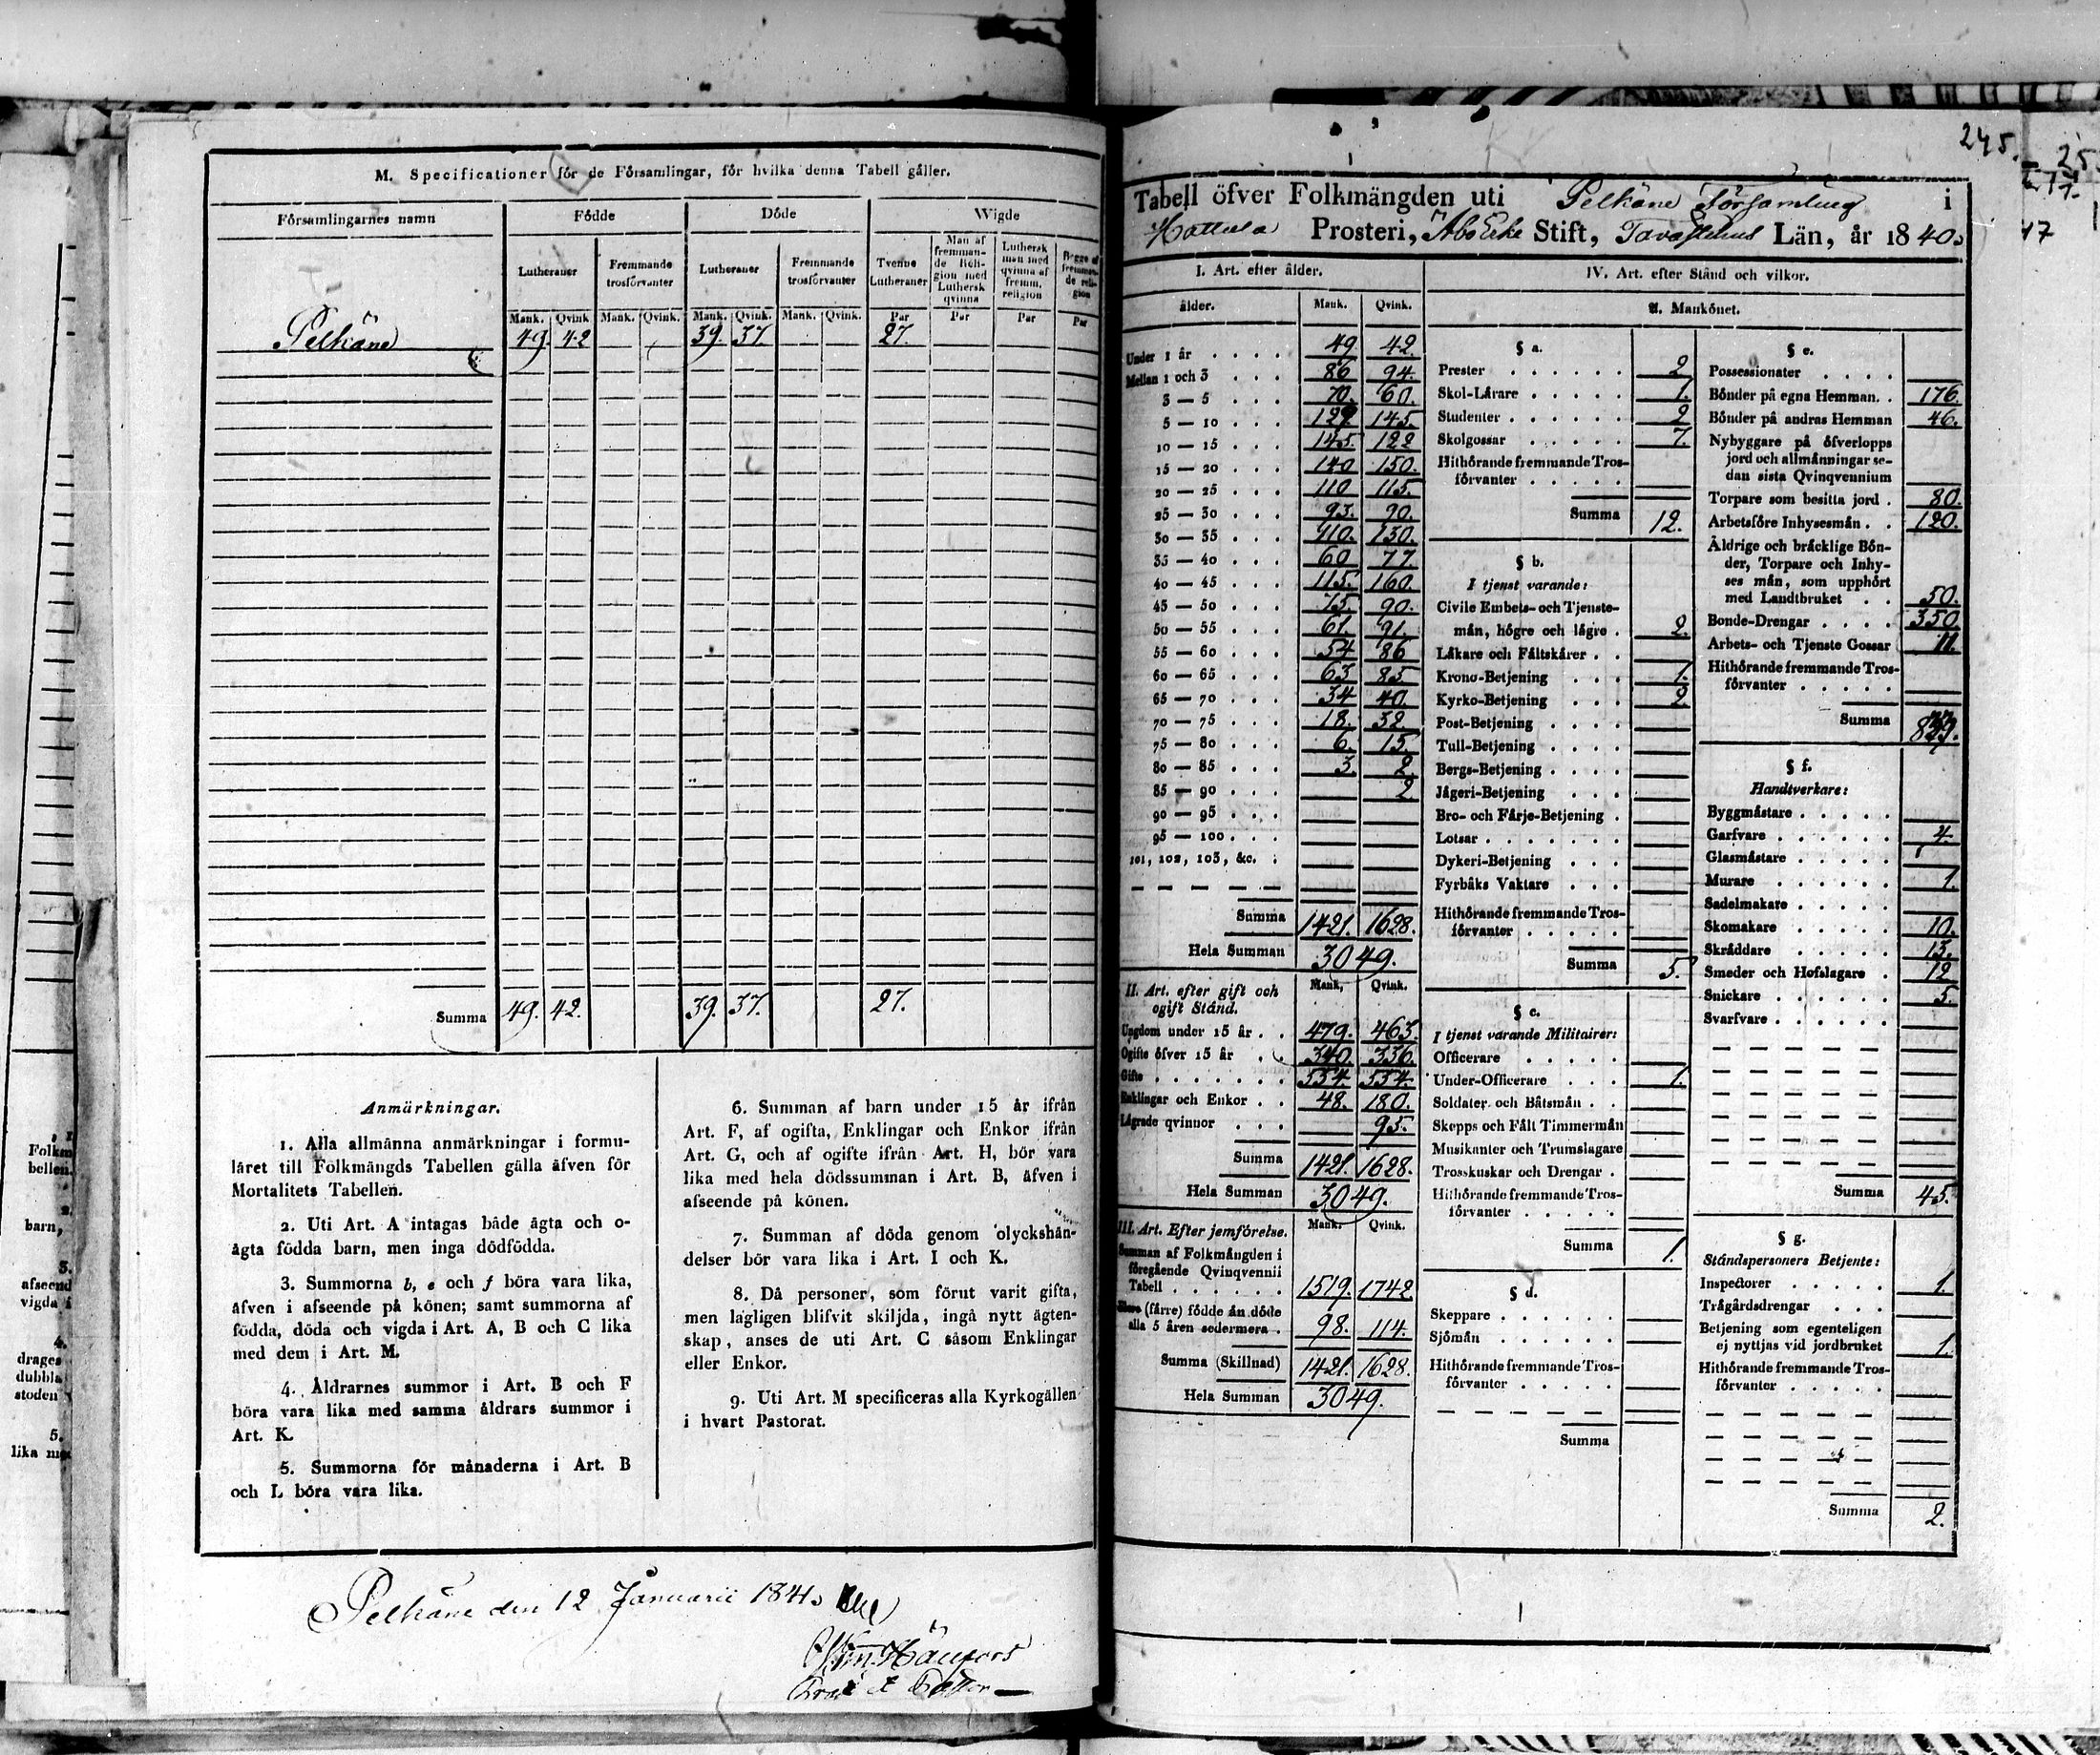 M. Specificationer för de Församlingar, för hvilka denna Tabell gäller.
Församlingarnes namn
Födde
Döde
Wigde
Lutheraner
Fremmande trosförvanter
Lutheraner
Fremmande trosförvanter
Tvenne Lutheraner
Man af fremmande Religion med Luthersk qvinna
Luthersk man med qvinna af fremm. religion
Begge af fremmande religion
Mank. Qvink. Mank. Qvink. Mank. Qvink. Mank. Qvink. Par Par Par Par
Pelkäne 49. 42 39. 37. 27.
Summa 49. 42. 39. 37. 27.
Anmärkningar.
1. Alla allmänna anmärkningar i formu-
läret till Folkmängds Tabellen gälla äfven för
Mortalitets Tabellen.
2. Uti Art. A intagas både ägta och o-
ägta födda barn, men inga dödfödda.
3. Summorna b, e och f böra vara lika,
äfven i afseende på könen; samt summorna af
födda, döda och vigda i Art. A, B och C lika
med dem i Art. M.
4. Åldrarnes summor i Art. B och F
böra vara lika med samma åldrars summor i
Art. K.
5. Summorna för månaderna i Art. B
och L böra vara lika.
6. Summan af barn under 15 år ifrån
Art. F, af ogifta, Enklingar och Enkor ifrån
Art. G, och af ogifte ifrån Art. H, bör vara
lika med hela dödssumman i Art. B, äfven i
afseende på könen.
7. Summan af döda genom olyckshän-
delser bör vara lika i Art. I och K.
8. Då personer, som förut varit gifta,
men lagligen blifvit skiljda, ingå nytt ägten-
skap, anses de uti Art. C såsom Enklingar
eller Enkor.
9. Uti Art. M specificeras alla Kyrkogällen
i hvart Pastorat.
Pelkäne den 12 Januarii 1841.
245.
Tabell öfver Folkmängden uti Pelkäne Församling i
Hattula Prosteri, Åbo Erke Stift, Tavastehus Län, år 1840.
I. Art. efter ålder.
ålder. Mank. Qvink.
Under 1 år 49 42.
Mellan 1 och 3 86 94.
3 — 5 70. 60.
5 — 10 129 145.
10 — 15 145. 122
15 — 20 140 150.
20 — 25 110 115.
25 — 30 93. 90.
30 — 35 110. 130.
35 — 40 60 77.
40 — 45 115. 160.
45 — 50 75. 90.
50 — 55 61. 91.
55 — 60 54 86
60 — 65 63 85.
65 — 70 34 40.
70 — 75 18. 32.
75 — 80 6. 15.
80 — 85 3. 2.
85 — 90 2
90 — 95
95 — 100
101, 102, 103, &c.
Summa 1421. 1628.
Hela Summan 3049.
II. Art. efter gift och ogift Stånd. Mank. Qvink.
Ungdom under 15 år 479. 463.
Ogifte öfver 15 år 340. 336.
Gifte 554. 554.
Enklingar och Enkor 48. 180.
Lägrade qvinnor 95.
Summa 1421. 1628.
Hela Summan 3049.
III. Art. Efter jemförelse. Mank. Qvink.
Summan af Folkmängden i
föregående Qvinqvennii
Tabell 1519. 1742
(färre) födde än döde
alla 5 åren sedermera 98. 114.
Summa (Skillnad) 1421. 1628.
Hela Summan 3049.
IV. Art. efter Stånd och vilkor.
A. Mankönet.
§ a.
Prester 2
Skol-Lärare 1.
Studenter 2
Skolgossar 7.
Hithörande fremmande Tros-
förvanter
Summa 12.
§ b.
I tjenst varande:
Civile Embets- och Tjenste-
män, högre och lägre 2.
Läkare och Fältskärer
Krono-Betjening 1.
Kyrko-Betjening 2
Post-Betjening
Tull-Betjening
Bergs-Betjening
Jägeri-Betjening
Bro- och Färje-Betjening
Lotsar
Dykeri-Betjening
Fyrbåks Vaktare
Hithörande fremmande Tros-
förvanter
Summa 5.
§ c.
I tjenst varande Militairer:
Officerare
Under-Officerare 1.
Soldater och Båtsmän
Skepps och Fält Timmermän
Musikanter och Trumslagare
Trosskuskar och Drengar
Hithörande fremmande Tros-
förvanter
Summa 1.
§ d.
Skeppare
Sjömän
Hithörande fremmande Tros-
förvanter
Summa
§ e.
Possessionater
Bönder på egna Hemman 176.
Bönder på andras Hemman 46.
Nybyggare på öfverlopps
jord och allmänningar se-
dan sista Qvinqvennium
Torpare som besitta jord 80.
Arbetsföre Inhysesmän 120.
Äldrige och bräcklige Bön-
der, Torpare och Inhy-
ses män, som upphört
med Landtbruket 50.
Bonde-Drengar 350
Arbets- och Tjenste Gossar 11.
Hithörande fremmande Tros-
förvanter
Summa
§ f.
Handtverkare:
Byggmästare
Garfvare 4.
Glasmästare
Murare 1.
Sadelmakare
Skomakare 10.
Skräddare 13.
Smeder och Hofslagare 12
Snickare 5.
Svarfvare
Summa 45.
§ g.
Ståndspersoners Betjente:
Inspectorer 1.
Trägårdsdrengar
Betjening som egenteligen
ej nyttjas vid jordbruket 1.
Hithörande fremmande Tros-
förvanter
Summa 2.